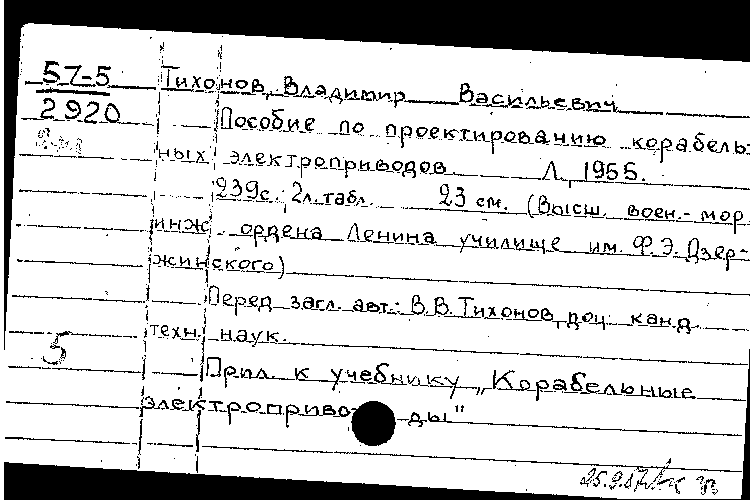 57-5
2920
Тихонов, Владимир Васильевич
Пособие по проектированию корабель-
ных электроприводов. Л., 1955.
239с.; 2л.табл. 23 см. (Высш. воен.-мор.
инж. ордена Ленина училище им. Ф.Э.Дзер-
жинского)
Перед загл. авт.: В.В.Тихонов, доц. канд.
техн. наук.
5
Прил. к учебнику „Корабельные
электроприводы"
25.9.57